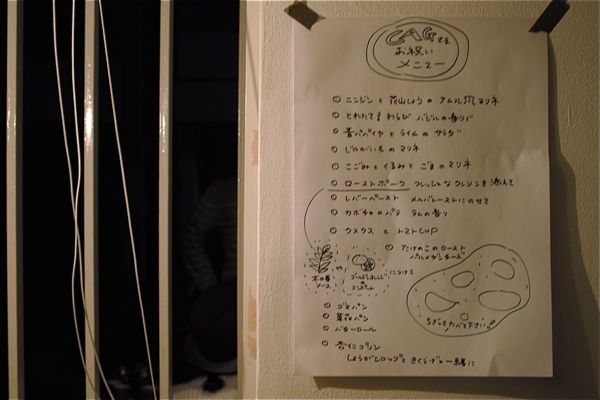 CAGさま
お祝い
メニュー
ニンジンと花山しょうのナムル風マリネ
とれたて!わらび バジルの香りで
青パパイヤとライムのサラダ
じゃがいものマリネ
こごみとくるみとごまのマリネ
ローストポーク フレッシュなクレソンを添えて
レバーペースト メルバトーストにのせて
カボチャのパテ ラムの香り
クスクスとトマトCUP
たけのこのロースト
パルメザンチーズ
木の芽
ソース
や
ゴールデンオレンジの
コンポート
につけて
ゴマパン
菜花パン
バターロール
ちぎってたべて下さい!
杏仁プリン
しょうがシロップときくらげを一緒に